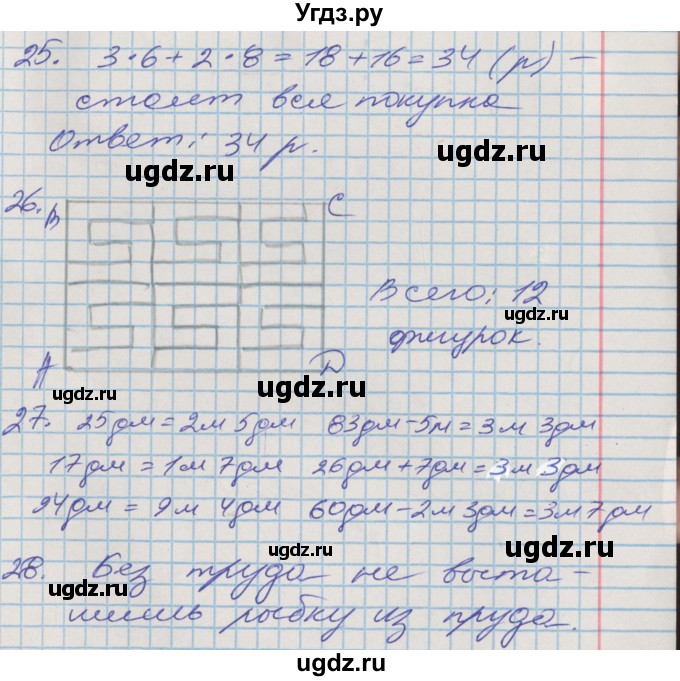 Угдз.ру
25. 3·6+2·8=18+16=34 (р) –
стоит вся покупка
Ответ: 34 р.
ugdz.ru ugdz.ru
26. B C
Всего: 12
фигурок.
ugdz.ru
A D
ugdz.ru ugdz.ru
27. 25дм=2м 5дм 83дм-5м=3м 3дм
17дм=1м 7дм 26дм+7дм=3м 3дм
94дм=9м 4дм 60дм-2м 3дм=3м 7дм
ugdz.ru ugdz.ru
28. Без труда не выта-
щишь рыбку из пруда.
ugdz.ru ugdz.ru